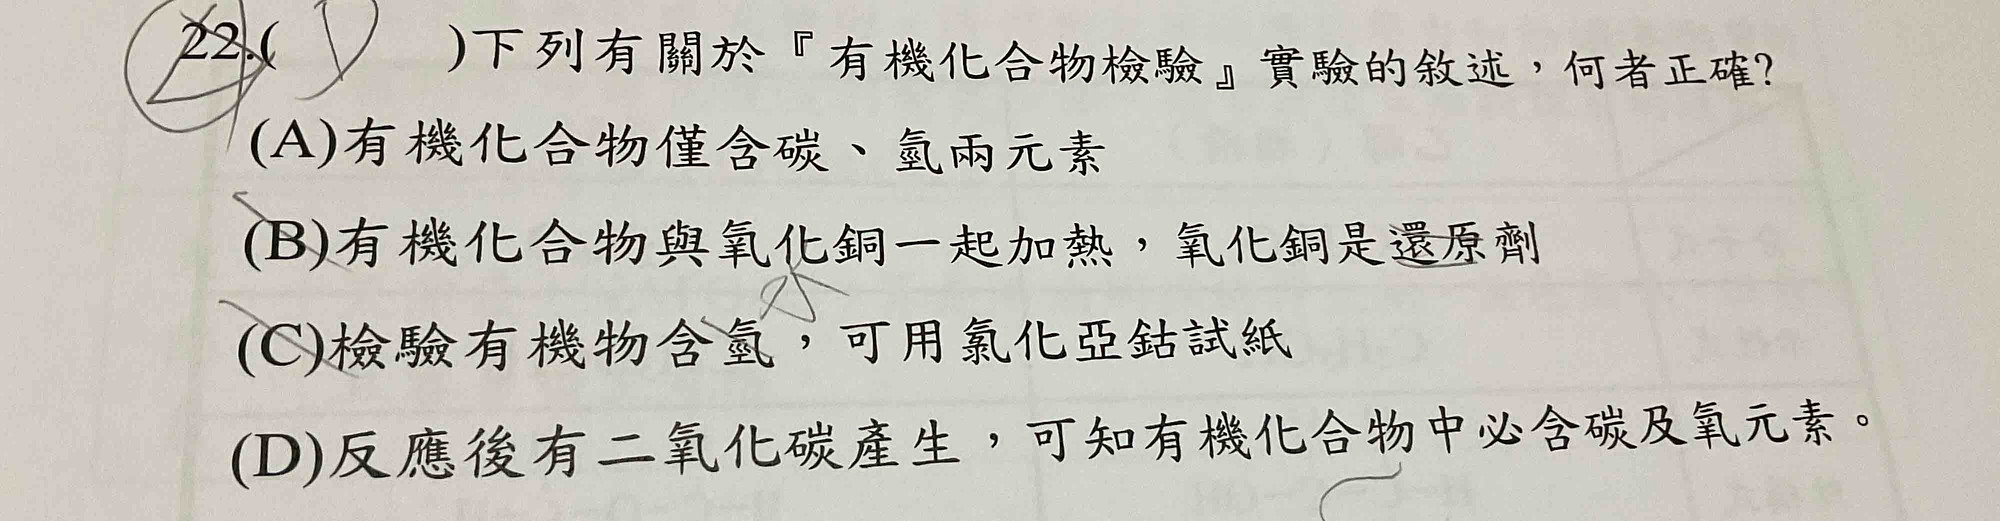 22.( D )下列有關於『有機化合物檢驗』實驗的敘述，何者正確?
(A)有機化合物僅含碳、氫兩元素
(B)有機化合物與氧化銅一起加熱，氧化銅是還原劑
水
(C)檢驗有機物含氫，可用氯化亞鈷試紙
(D)反應後有二氧化碳產生，可知有機化合物中必含碳及氧元素。